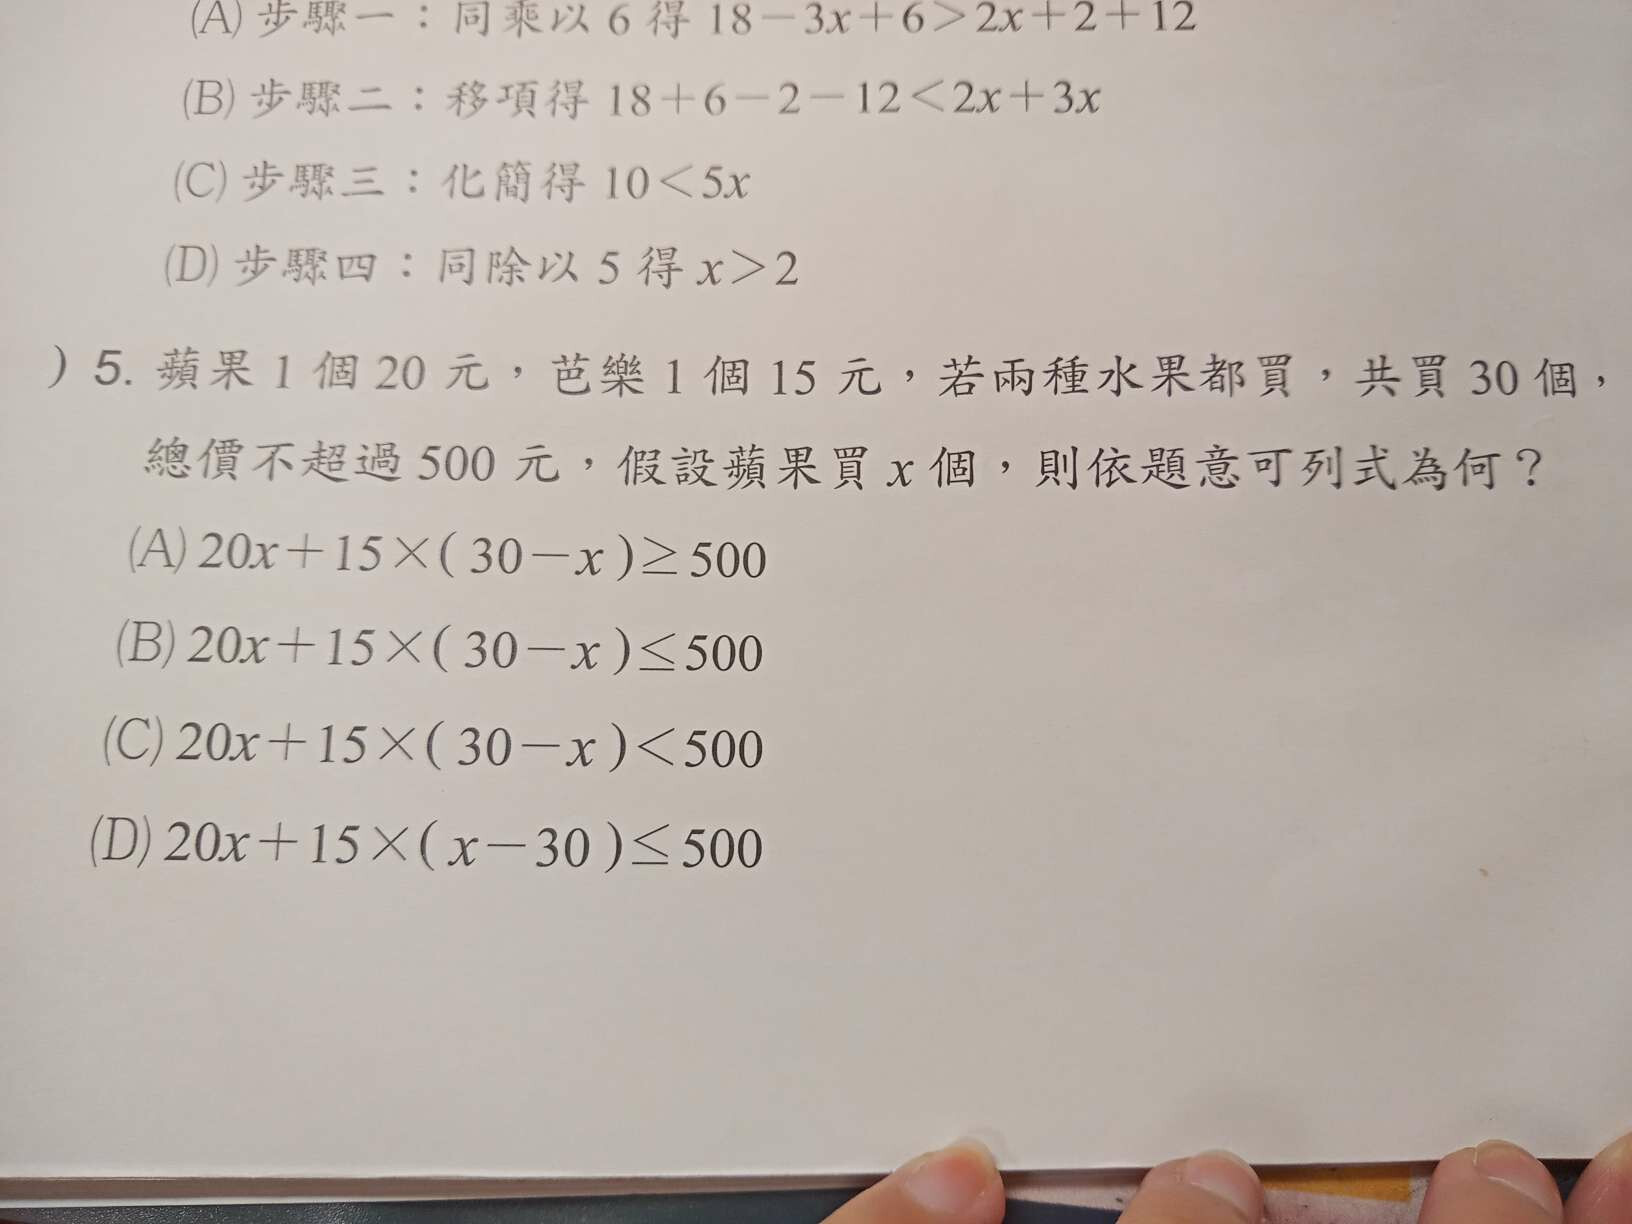 (A) 步驟一：同乘以 6 得 18－3x＋6＞2x＋2＋12
(B) 步驟二：移項得 18＋6－2－12＜2x＋3x
(C) 步驟三：化簡得 10＜5x
(D) 步驟四：同除以 5 得 x＞2
) 5. 蘋果 1 個 20 元，芭樂 1 個 15 元，若兩種水果都買，共買 30 個，
總價不超過 500 元，假設蘋果買 x 個，則依題意可列式為何？
(A) 20x＋15×( 30－x )≥500
(B) 20x＋15×( 30－x )≤500
(C) 20x＋15×( 30－x )＜500
(D) 20x＋15×( x－30 )≤500